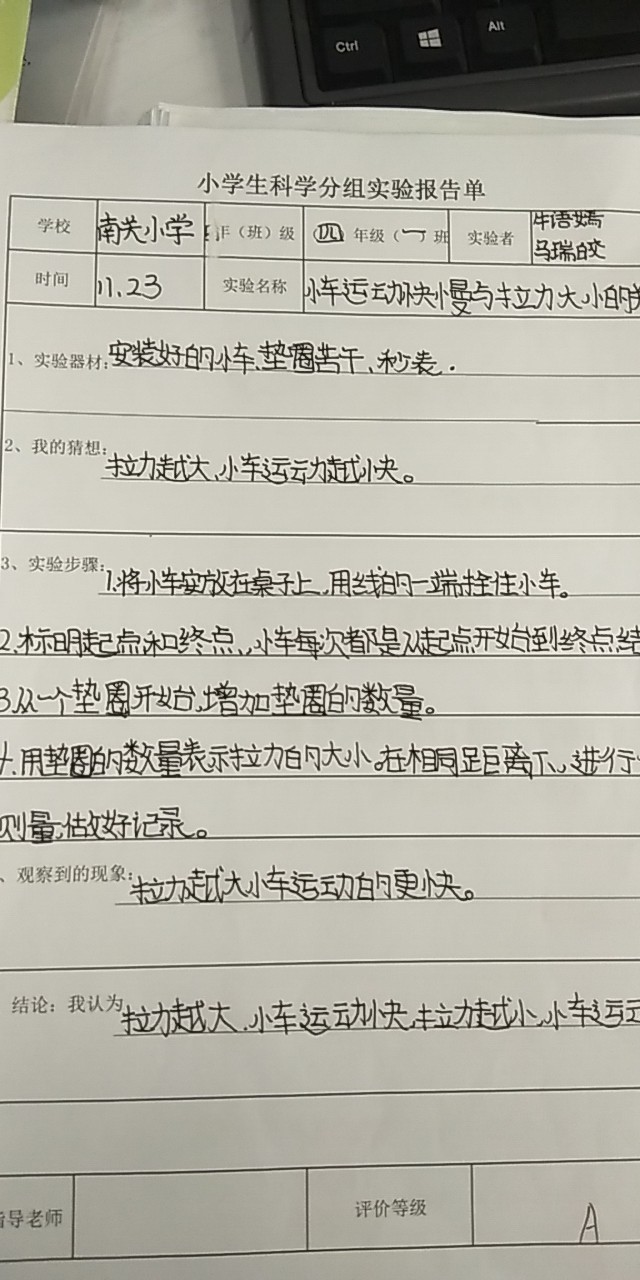 Ctrl
Alt
小学生科学分组实验报告单
学校 南关小学 年（班）级 四 年级（一 班 实验者 牛语嫣
马瑞皎
时间 11.23 实验名称 小车运动快慢与拉力大小的关
1、实验器材：安装好的小车、垫圈若干、秒表.
2、我的猜想：拉力越大,小车运动越快。
3、实验步骤：1.将小车安放在桌子上,用线的一端拴住小车。
2.标明起点和终点,小车每次都是从起点开始到终点结
3.从一个垫圈开始,增加垫圈的数量。
4.用垫圈的数量表示拉力的大小。在相同距离下,进行
测量,做好记录。
、观察到的现象：拉力越大小车运动的更快。
结论：我认为 拉力越大,小车运动快,拉力越小,小车运动
指导老师 评价等级 A